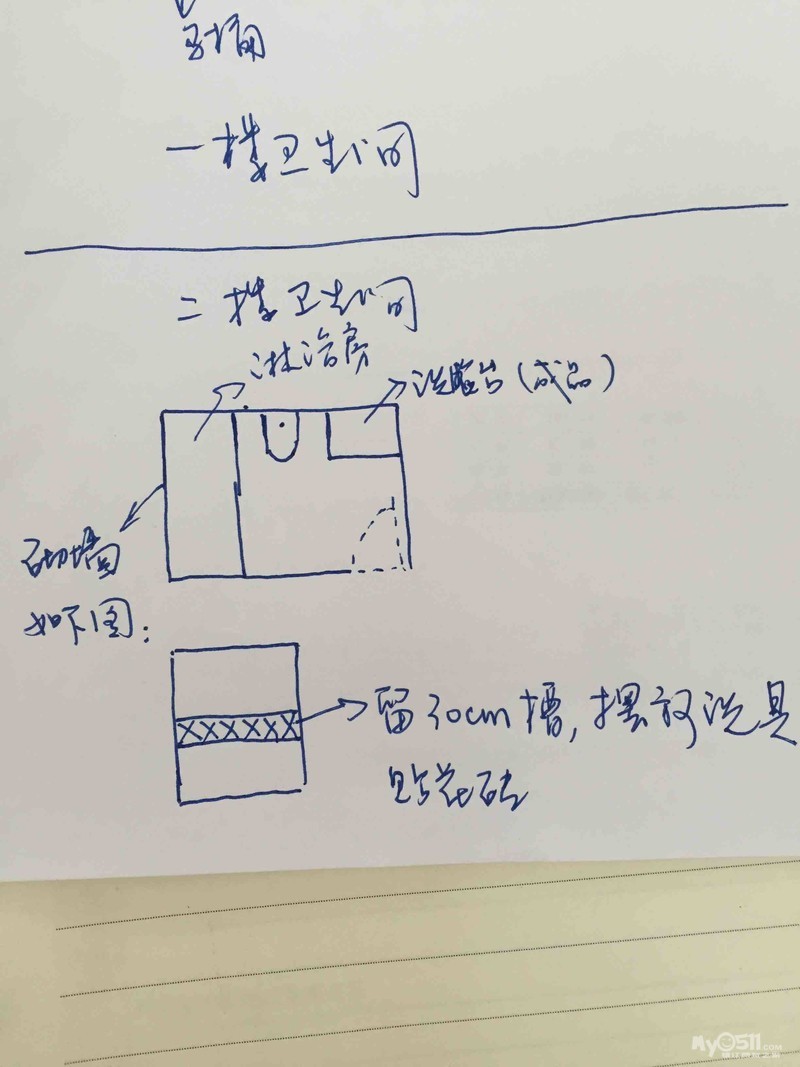 马桶
一楼卫生间
二楼卫生间
淋浴房
洗脸台(成品)
砌墙
如下图:
留30cm槽,摆放洗具
贴花砖
My0511.COM